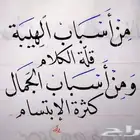 مِنْ أَسبَابِ الهَيبَة
قلّة الكَلَام
وَمِنْ أَسبَابِ الجَمَال
كثرَة الإِبتسَام
حراج